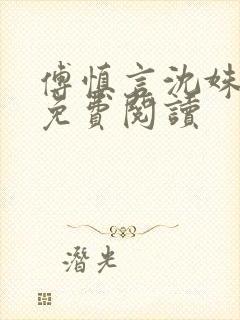 傅慎言沈姝
免費閱讀
潛光